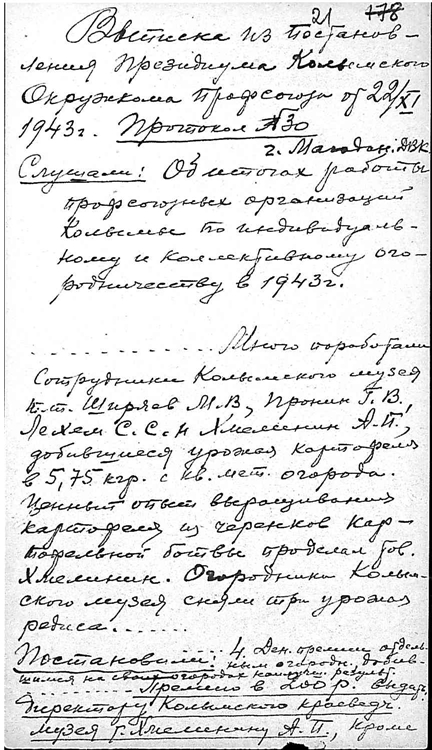 21 178
Выписка из Постанов-
ления Президиума Колымского
Окружкома Профсоюза от 22/XI
1943г. Протокол №30
г. Магадан, ДВК
Слушали: Об итогах работы
профсоюзных организаций
Колымы по индивидуаль-
ному и коллективному ого-
родничеству в 1943г.
............ Много поработали
Сотрудники Колымского музея
т.т. Ширяев М.В., Пронин Г.В.,
Лехем С.С. и Хмелинин А.П.,
добившиеся урожая картофеля
в 5,75 кгр. с кв. мет. огорода.
Ценный опыт выращивания
картофеля из черенков кар-
тофельной ботвы проделал тов.
Хмелинин. Огородники Колым-
ского музея сняли три урожая
редиса.......
............ 4. Ден. премии отдель-
Постановили: ным огородн., добив-
шимся на своих огородах наилучш. результ.
............ Премию в 200 р. выдать:
Директору Колымского краеведч.
музея т. Хмелинину А.П., кроме